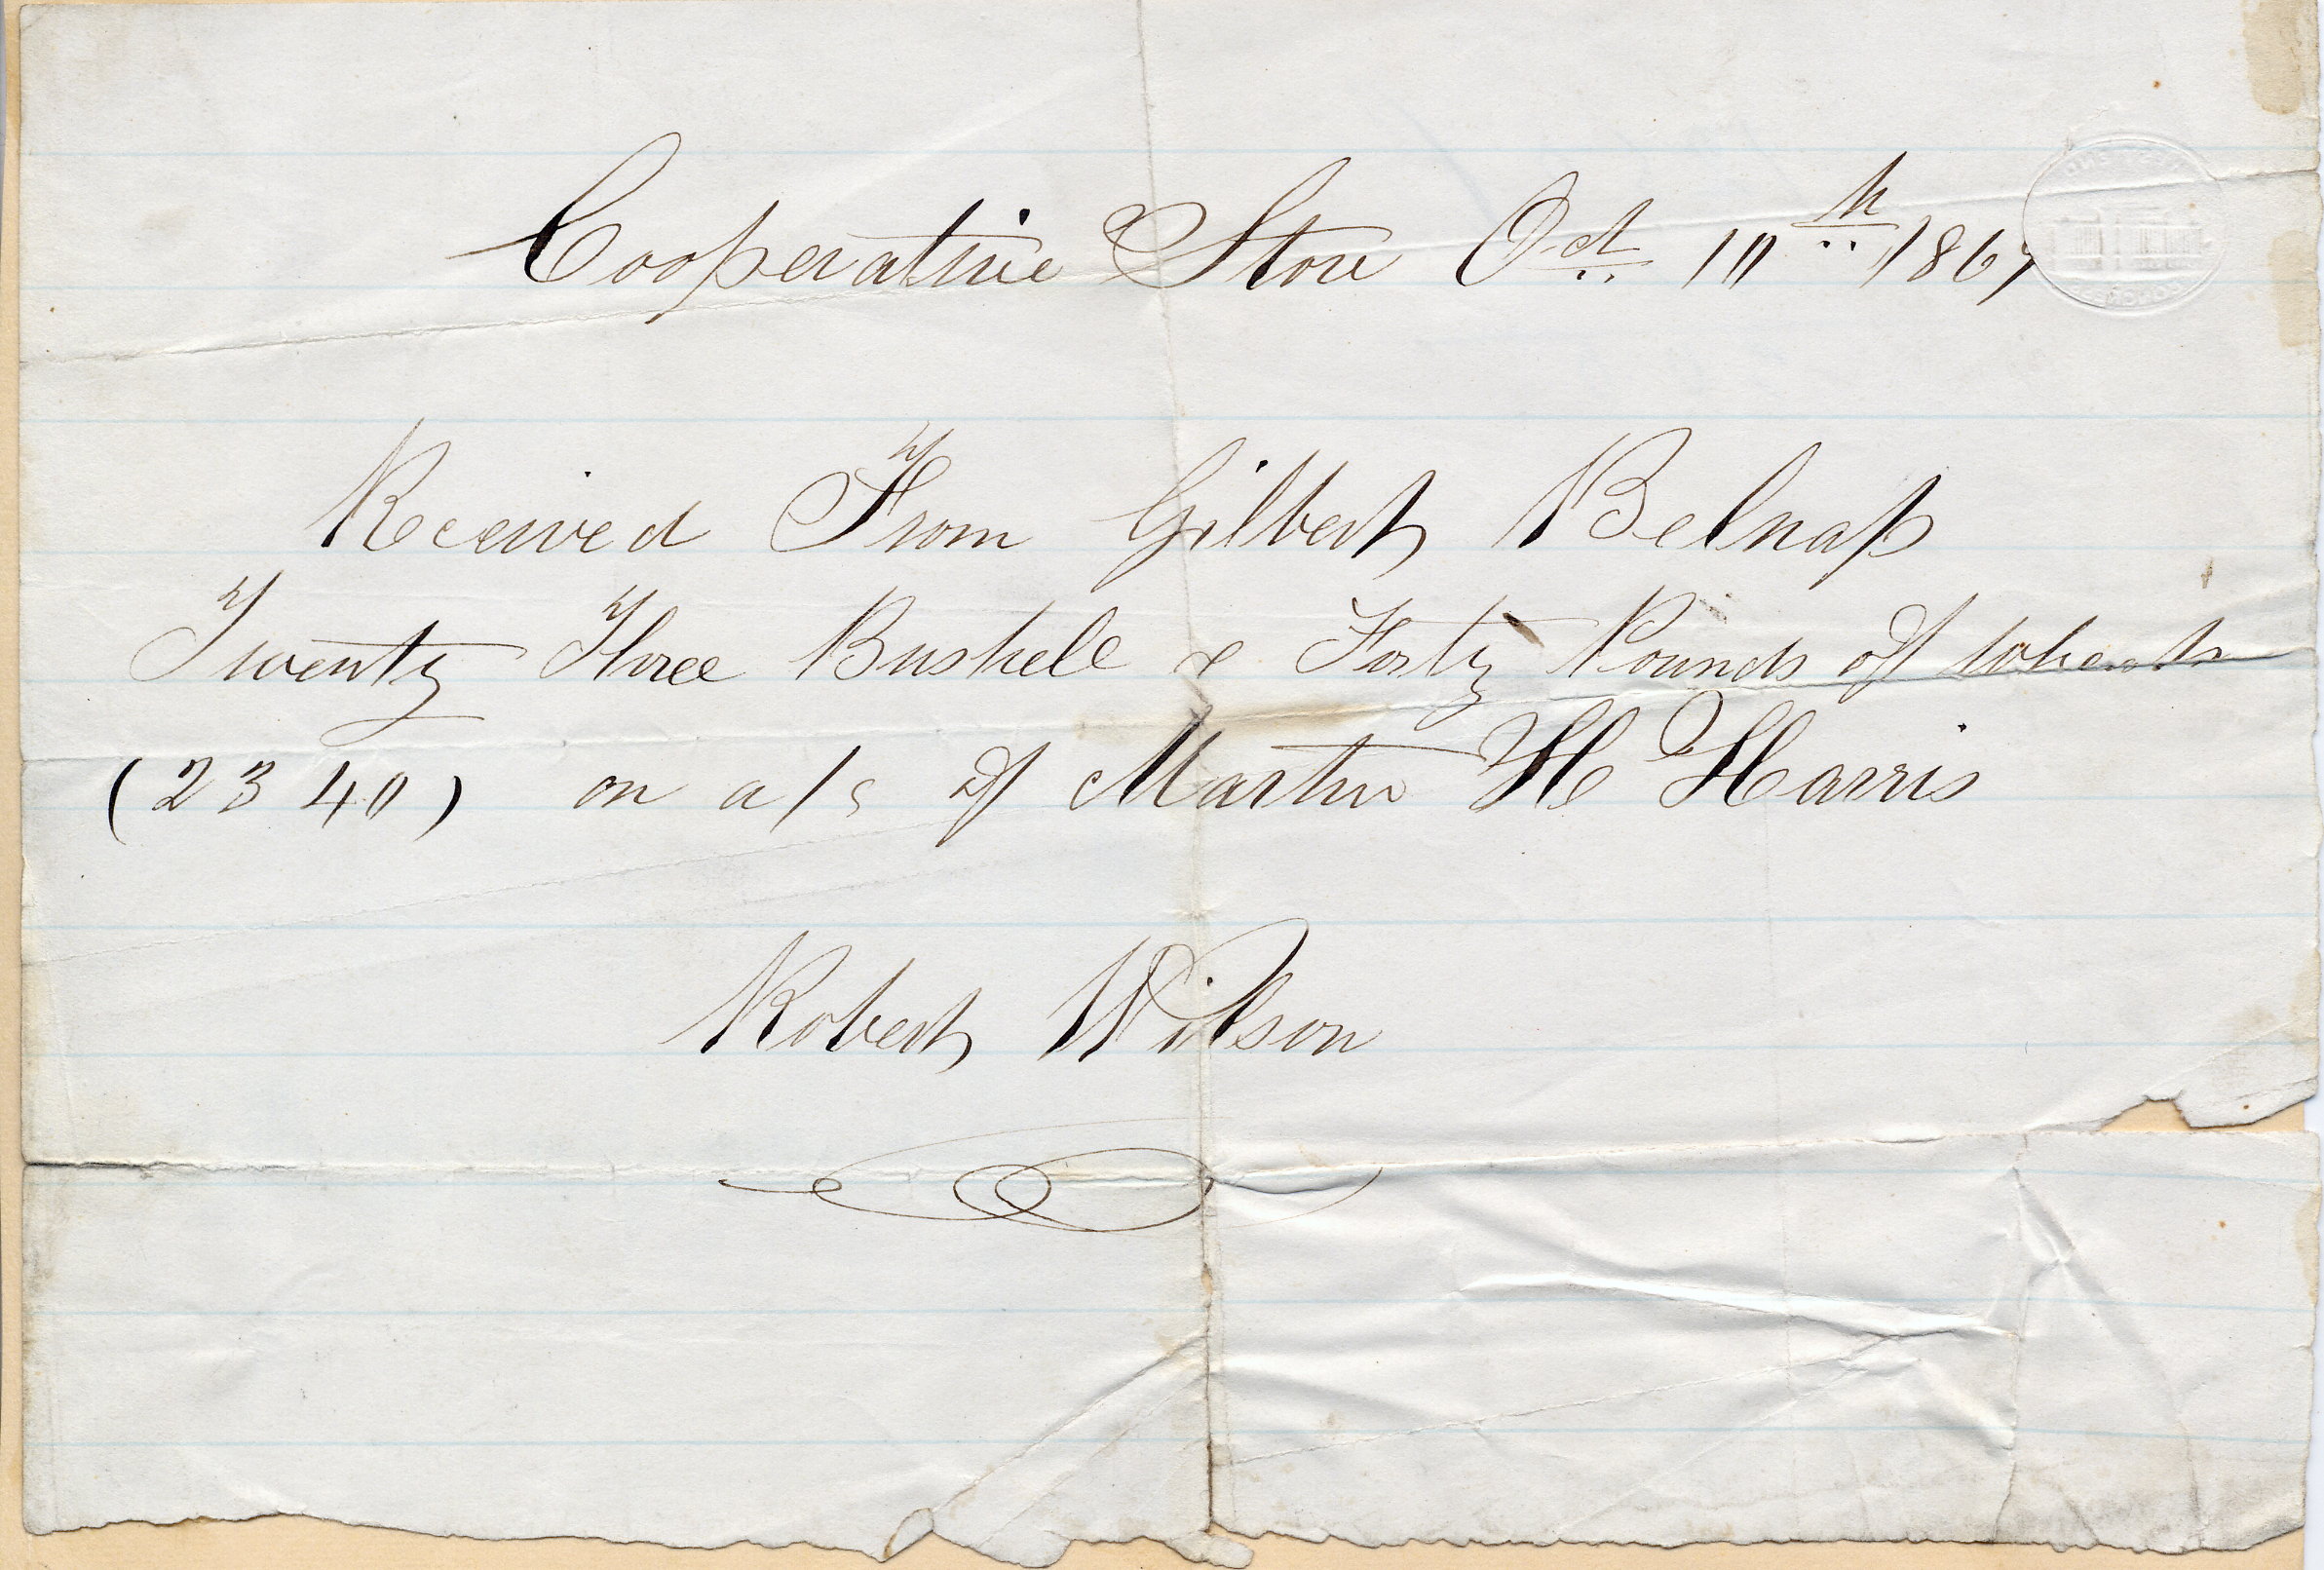 Cooperative Store Oct 10th 1867
Received From Gilbert Belnap
Twenty Three Bushels & Forty Pounds of wheat
(23 40) on a/c of Martin H Harris
Robert Wilson